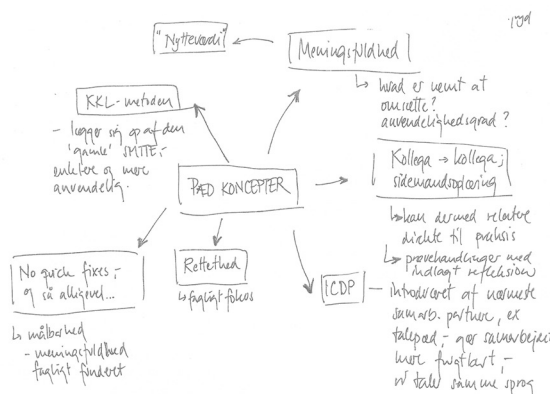 "Nytteværdi"
Meningsfuldhed
↳ hvad er nemt at
omsætte?
anvendelighedsgrad?
KKL-metoden
- lægger sig op af den
'gamle' SMTTE,-
enklere og mere
anvendelig.
PÆD KONCEPTER
Kollega → kollega;
sidemandsoplæring
↳ kan dermed relatere
direkte til praksis
↳ prøvehandlinger med
indlagt refleksion
No quick fixes,-
og så alligevel...
↳ målbarhed
- meningsfuldhed
fagligt funderet
Rettethed
↳ fagligt fokus
ICDP - introduceret af nærmeste
samarb. partnere, ex
talepæd,- gør samarbejdet
mere frugtbart,-
vi taler samme sprog